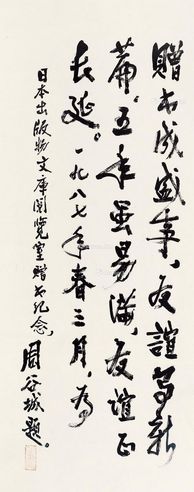 赠书成盛事，友谊谱新
篇。五年虽易满，友谊正
长延。一九八七年春三月，为
日本出版物文库阅览室赠书纪念，
周谷城题。